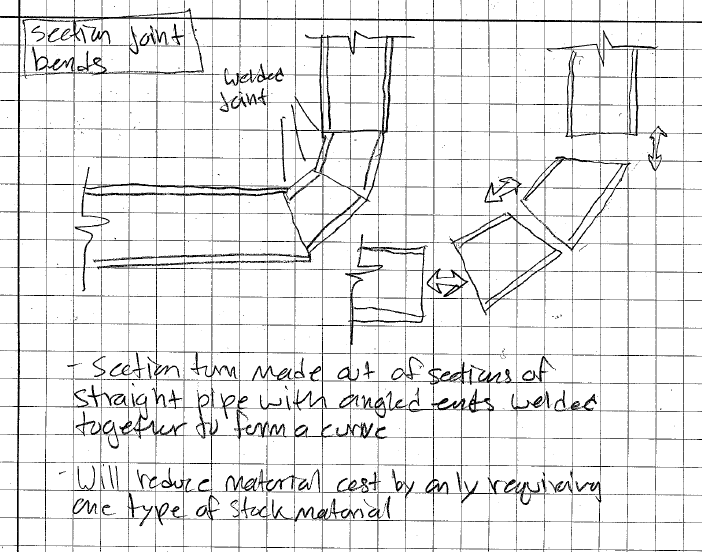 Section joint
bends
Welded
Joint
- Section turn made out of sections of
straight pipe with angled ends welded
together to form a curve
- Will reduce material cost by only requiring
one type of stock material